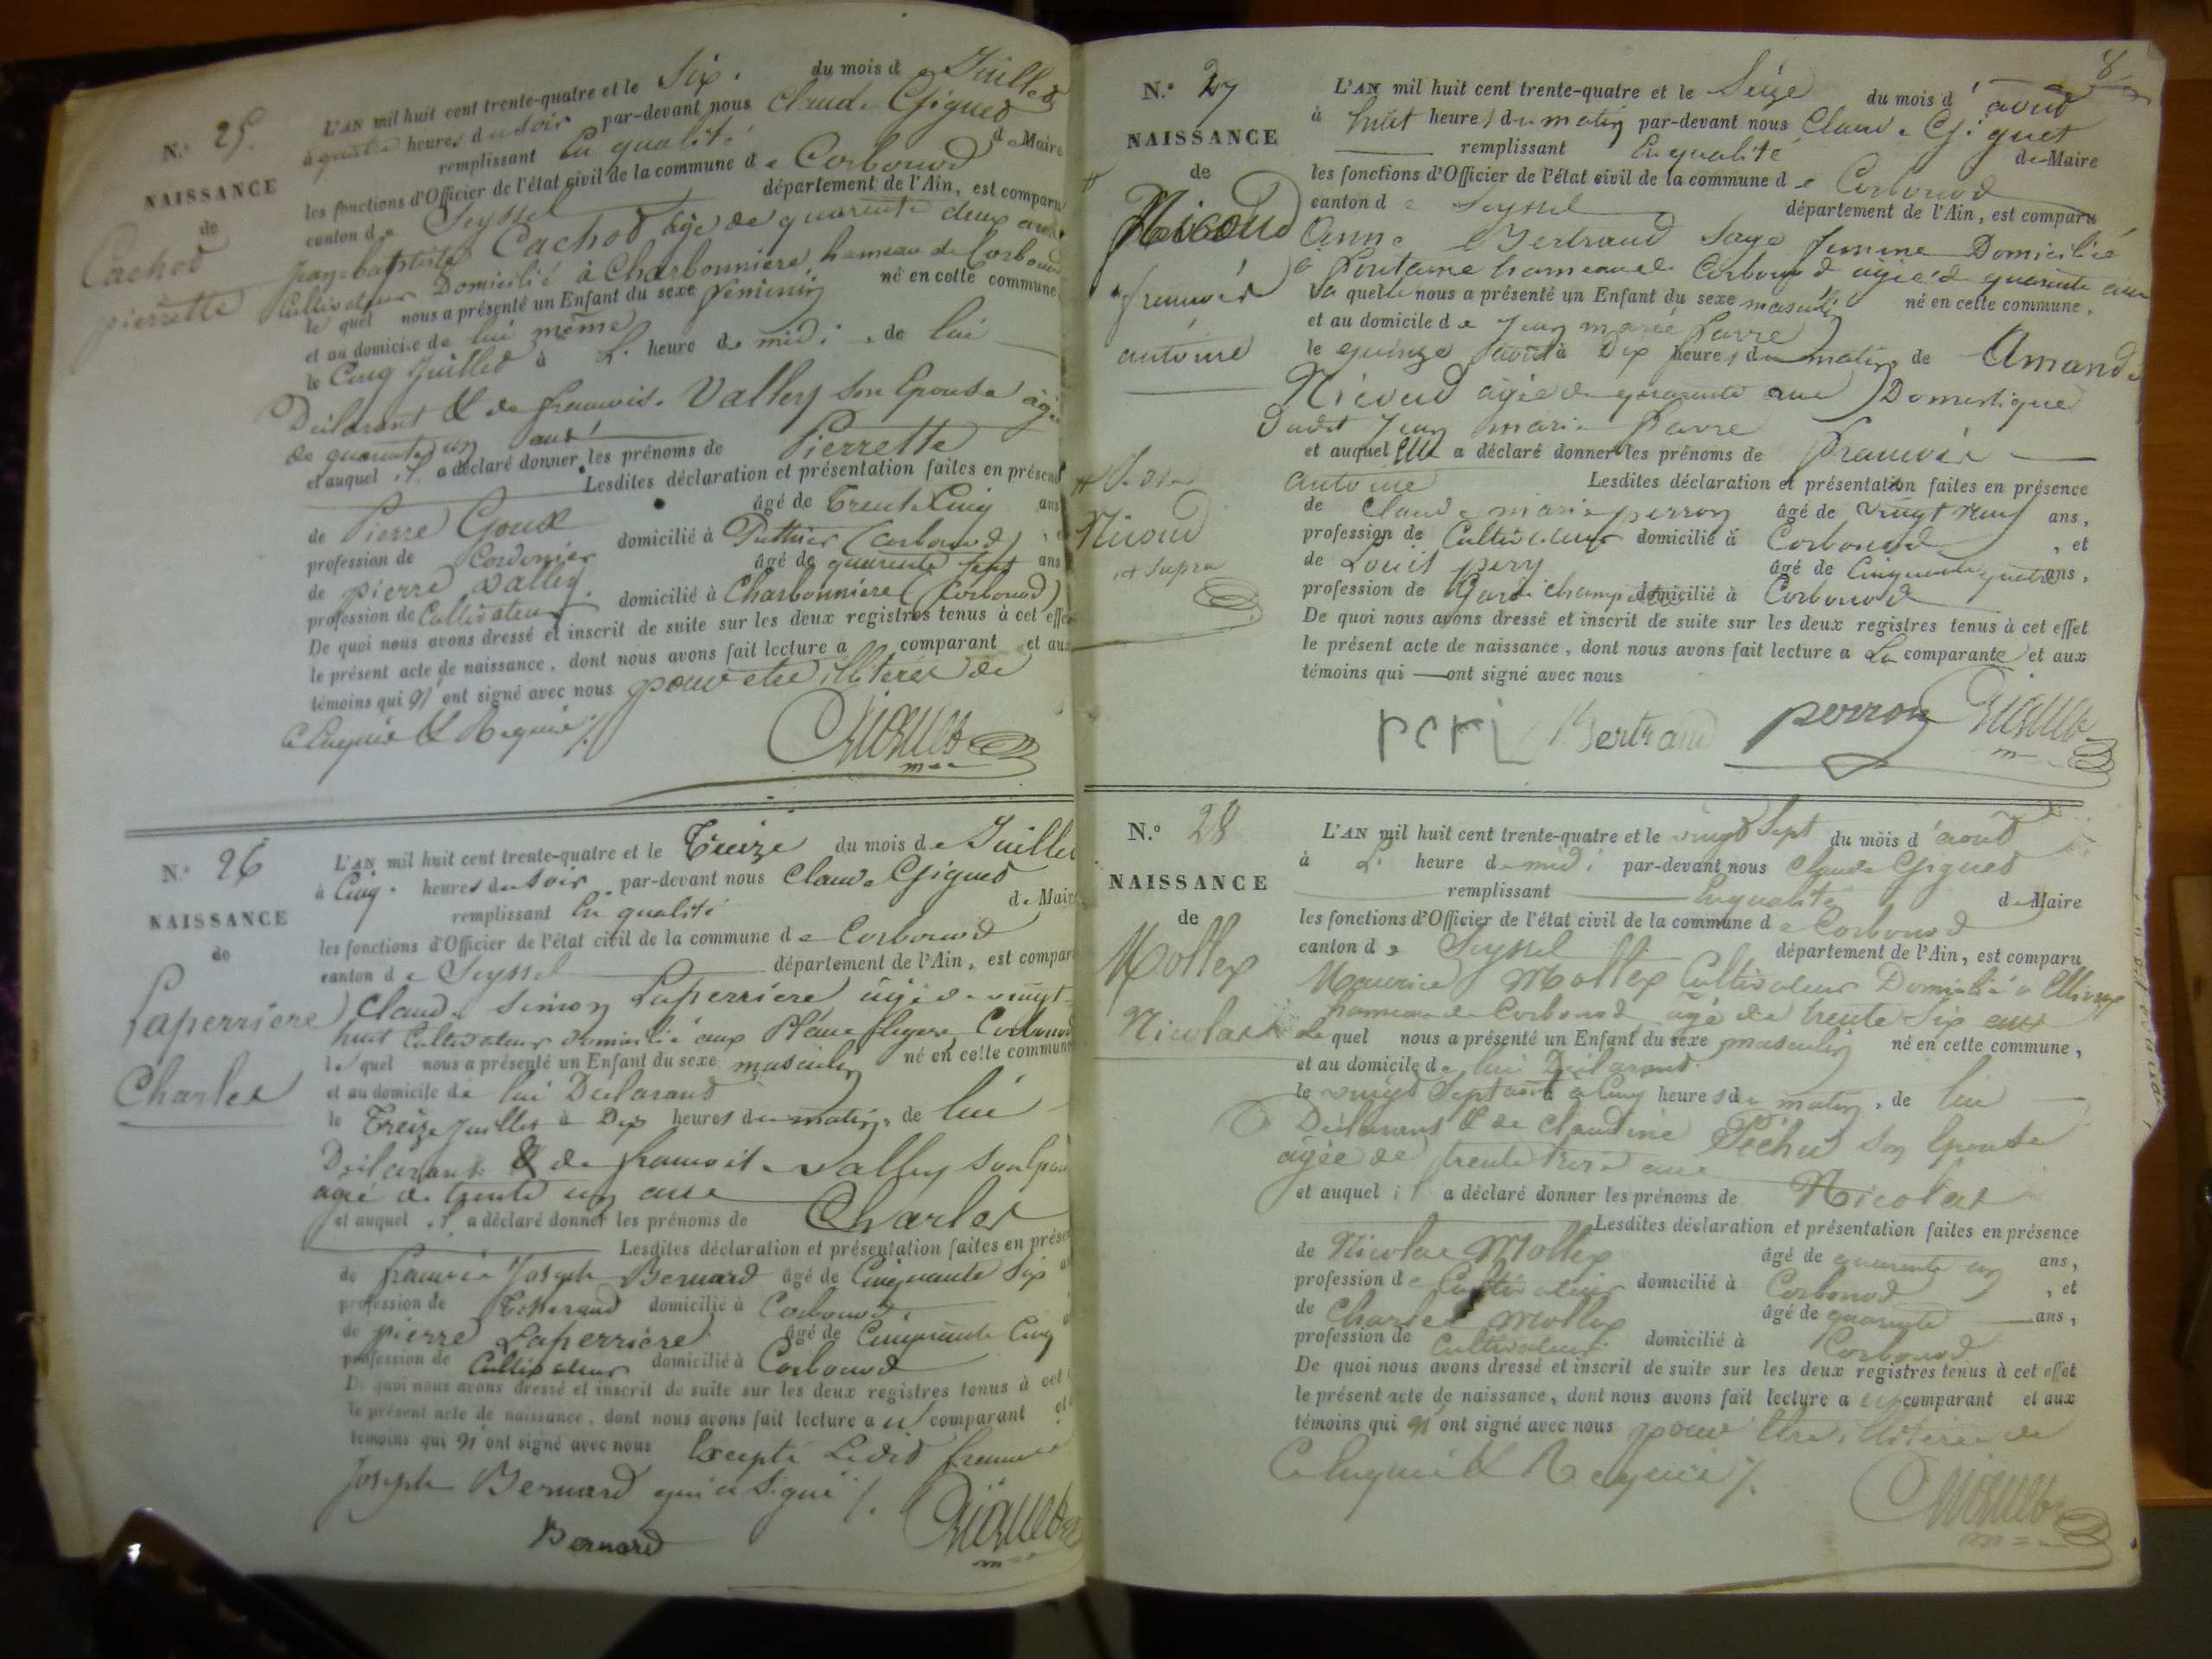 N.° 25.
NAISSANCE
de
Cachod
pierrette
L'AN mil huit cent trente-quatre et le Six. du mois de Juilled
à quatre heures du soir par-devant nous Claude Gigued
remplissant En qualité de Maire
les fonctions d'Officier de l'état civil de la commune de Corbonod
canton de Seyssel département de l'Ain, est comparu
jean baptiste Cachod âgé de quarente deux ans
Cultivateur Domicilié à Charbonniere hameau de Corbonod
le quel nous a présenté un Enfant du sexe féminin né en cette commune
et au domicile de lui même
le Cinq Juilled à L' heure de midi, de lui
Déclarant & de francoise Vallery son Epouse âgée
de quarente un ans
et auquel il a déclaré donner les prénoms de Pierrette
Lesdites déclaration et présentation faites en présen
de Pierre Goux âgé de trente Cinq ans
profession de Cordonier domicilié à Puthier (Corbonod)
de pierre Vallery. âgé de quarente sept ans
profession de Cultivateur domicilié à Charbonniere (Corbonod)
De quoi nous avons dressé et inscrit de suite sur les deux registres tenus à cet effe
le présent acte de naissance, dont nous avons fait lecture a comparant et aux
témoins qui n'ont signé avec nous pour etre illiterés de
Ce Enquis & Requis /.
Giguet
N.° 26
NAISSANCE
de
Laperriere
Charles
L'AN mil huit cent trente-quatre et le Treize du mois de Juillet
à Cinq. heures du soir par-devant nous Claude Gigued
remplissant En qualité de Maire
les fonctions d'Officier de l'état civil de la commune de Corbonod
canton de Seyssel département de l'Ain, est compar
Claude Simon Laperriere âgé de vingt
huit Cultivateur domicilié aux Corbonod
le quel nous a présenté un Enfant du sexe masculin né en cette commune
et au domicile de lui Déclarand
le Treize Juillet à Dix heures du matin, de lui
Déclarant & de francoise Vallery son Epou
agée de trente un ans
et auquel il a déclaré donner les prénoms de Charles
Lesdites déclaration et présentation faites en prése
de francois Joseph Bernard âgé de Cinquante Six
profession de domicilié à Corbonod
de pierre Laperriere âgé de Cinquante Cinq
profession de Cultivateur domicilié à Corbonod
De quoi nous avons dressé et inscrit de suite sur les deux registres tenus à cet
le présent acte de naissance, dont nous avons fait lecture a u comparant et
témoins qui n'ont signé avec nous Excepté Ledid francois
Joseph Bernard qui a signé /.
Bernard Giguet
8
N.° 27
NAISSANCE
de
Nicoud
francois
antoine
Nicoud
ut supra
L'AN mil huit cent trente-quatre et le Seize du mois d'aoud
à huit heures du matin par-devant nous Claude Giguet
remplissant En qualité de Maire
les fonctions d'Officier de l'état civil de la commune de Corbonod
canton de Seyssel département de l'Ain, est comparu
Anne Bertrand Sage femme Domicilié
à fontaine hameau de Corbonod agée de quarente ans
La quelle nous a présenté un Enfant du sexe masculin né en cette commune,
et au domicile de Jean marie favre
le quinze aoud à Dix heures du matin, de Amande
Nicoud agée de quarente ans Domestique
Dudit Jean marie favre
et auquel Elle a déclaré donner les prénoms de francois
antoine Lesdites déclaration et présentation faites en présence
de Claude marie perron âgé de vingt neuf ans,
profession de Cultivateur domicilié à Corbonod, et
de Louis pery âgé de Cinquante quatre ans,
profession de Garde champêtre domicilié à Corbonod
De quoi nous avons dressé et inscrit de suite sur les deux registres tenus à cet effet
le présent acte de naissance, dont nous avons fait lecture a La comparante et aux
témoins qui ont signé avec nous
peri Bertrand perron Giguet
N.° 28
NAISSANCE
de
Mollex
Nicolas
L'AN mil huit cent trente-quatre et le vingt Sept du mois d'aoud
à L' heure de midi par-devant nous Claude Gigued
remplissant En qualité de Maire
les fonctions d'Officier de l'état civil de la commune de Corbonod
canton de Seyssel département de l'Ain, est comparu
Maurice Mollex Cultivateur Domicilié à
hameau de Corbonod âgé de trente Six ans
Le quel nous a présenté un Enfant du sexe masculin né en cette commune,
et au domicile de lui Déclarand
le vingt Sept aoud à Cinq heures du matin, de lui
Déclarant & de Claudine Péchu son Epouse
agée de trente trois ans
et auquel il a déclaré donner les prénoms de Nicolas
Lesdites déclaration et présentation faites en présence
de Nicolas Mollex âgé de quarente un ans,
profession de Cultivateur domicilié à Corbonod, et
de Charles Mollex âgé de quarente ans,
profession de Cultivateur domicilié à Corbonod
De quoi nous avons dressé et inscrit de suite sur les deux registres tenus à cet effet
le présent acte de naissance, dont nous avons fait lecture a u comparant et aux
témoins qui n'ont signé avec nous pour être illiterés de
Ce Enquis & Requis /.
Giguet